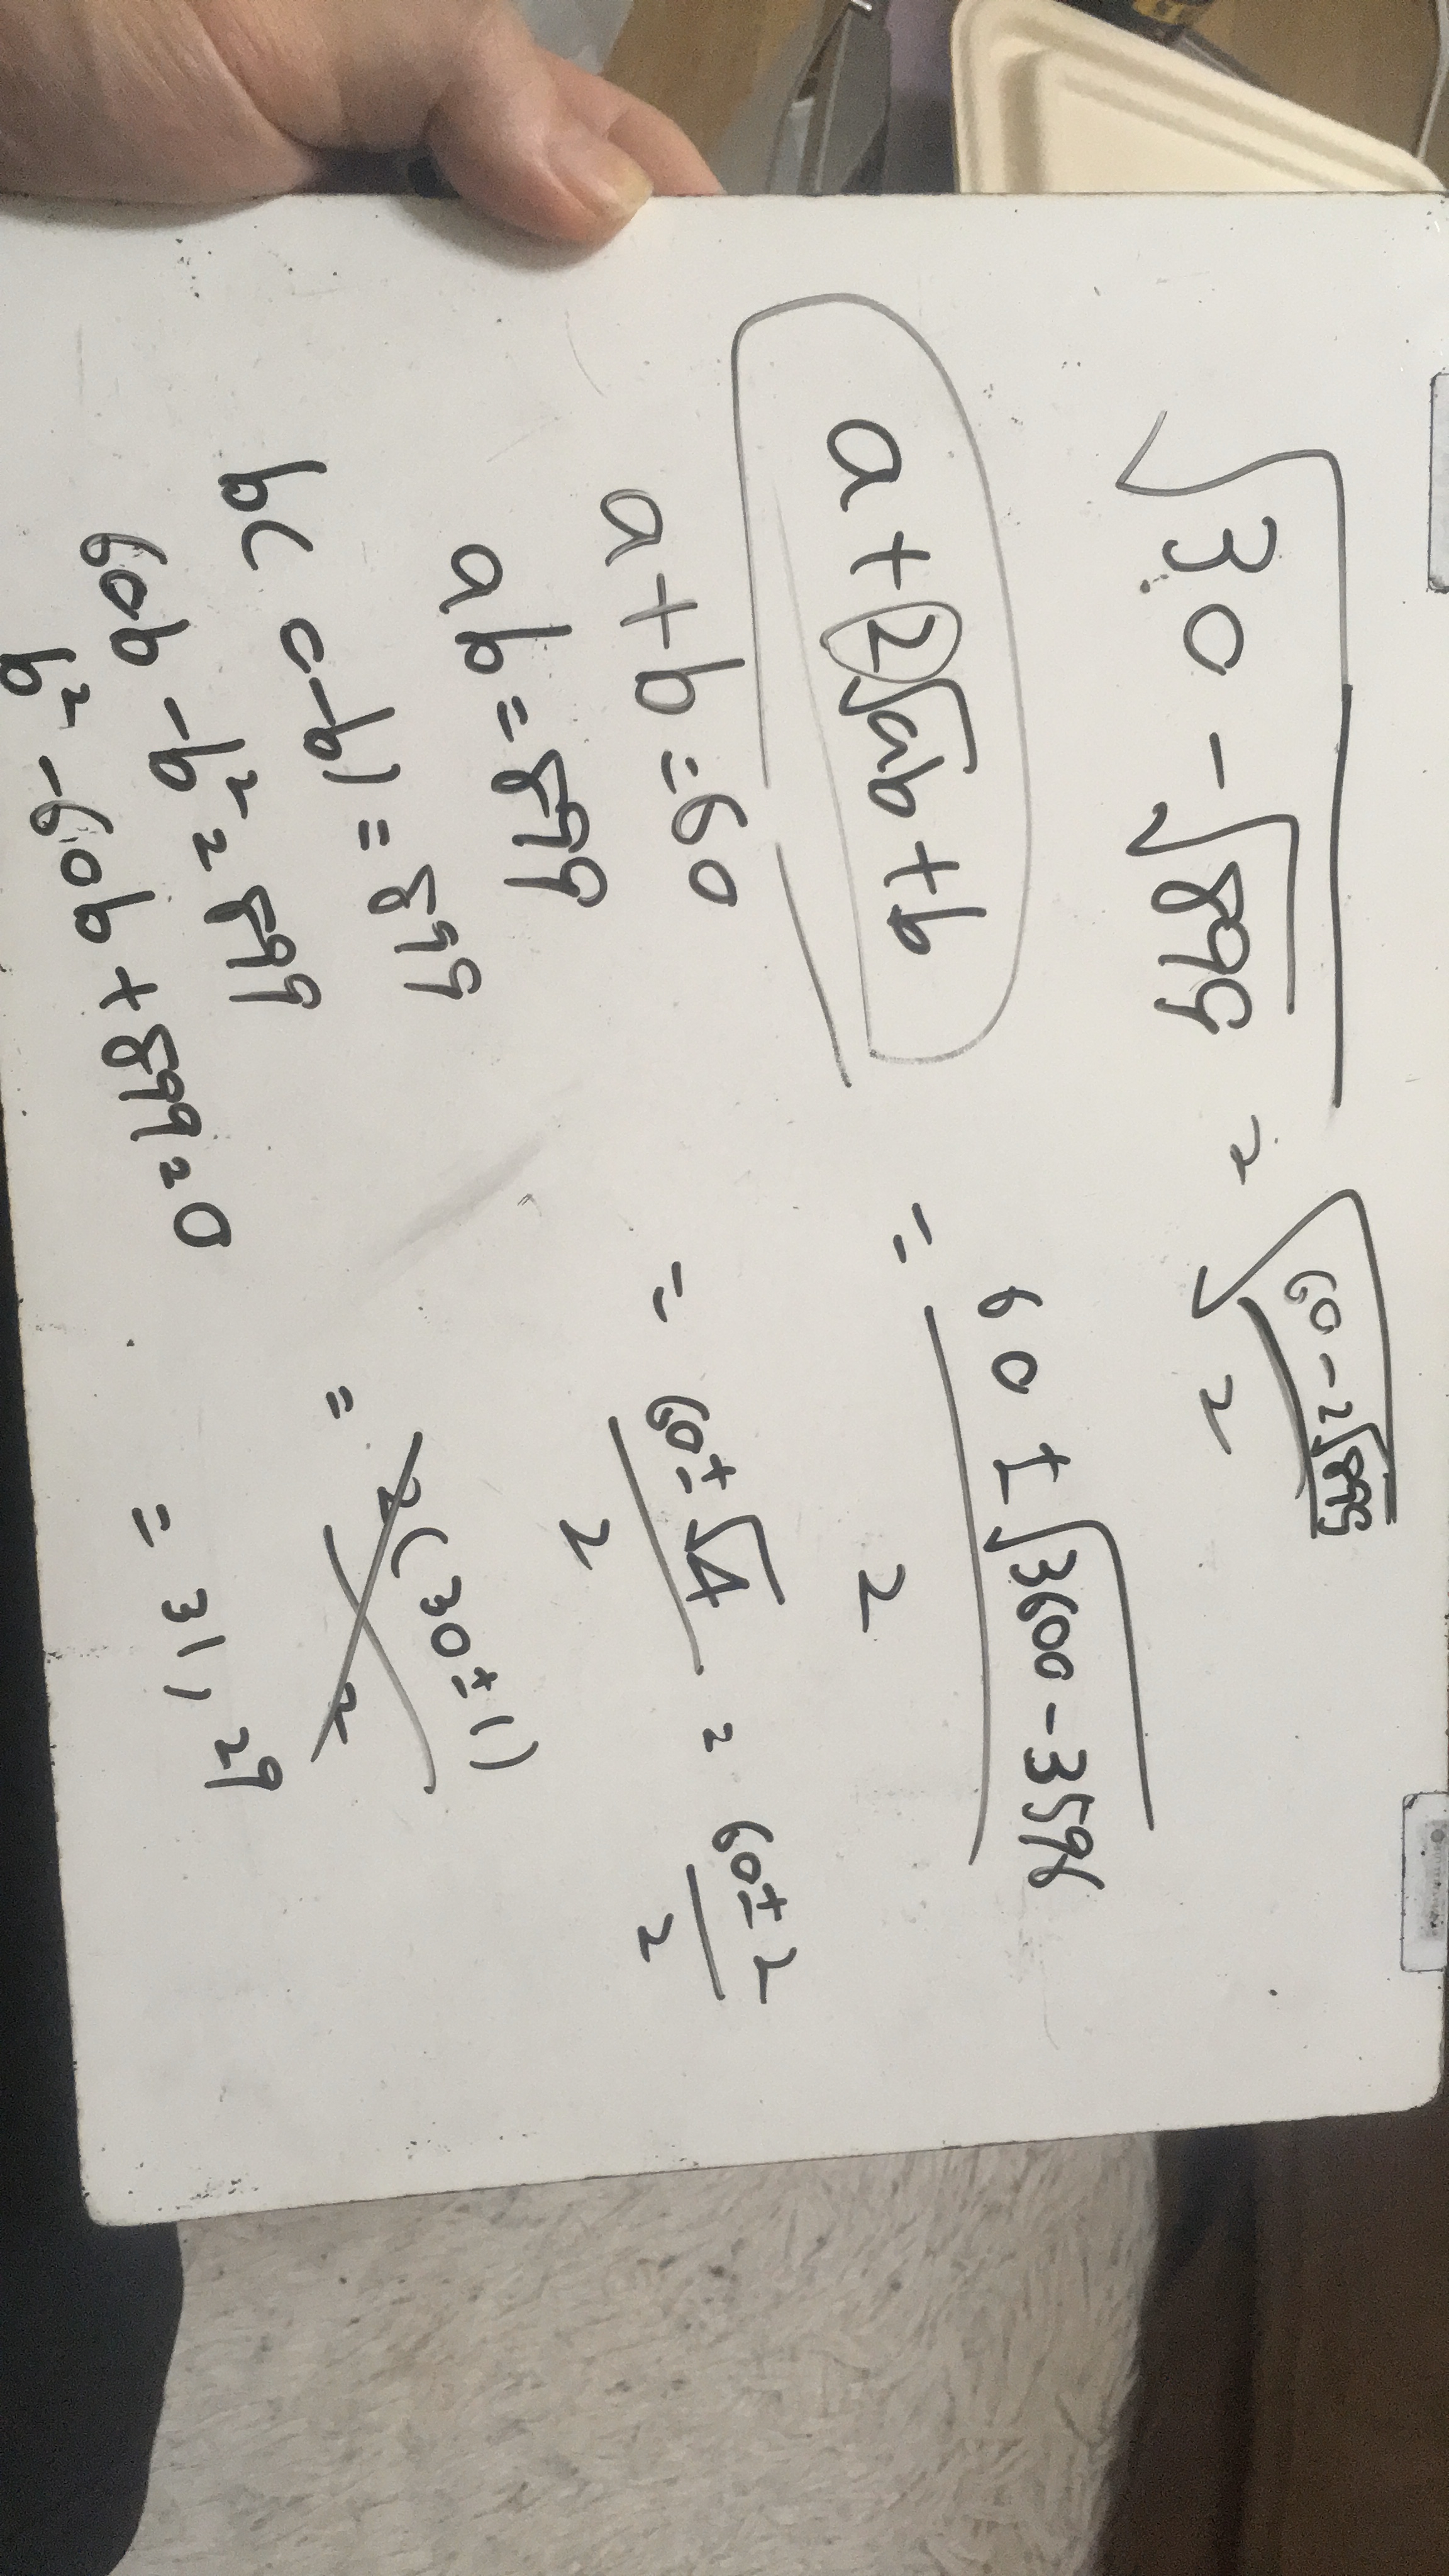 √(30 - √899) = √((60 - 2√899)/2)
a + 2√ab + b
a + b = 60
ab = 899
b(60-b) = 899
60b - b² = 899
b² - 60b + 899 = 0
= (60 ± √(3600 - 3596))/2
= (60 ± √4)/2 = (60 ± 2)/2
= 2(30 ± 1)/2
= 31, 29